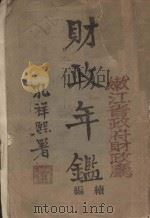 嫩江省政府財政廳
財政年鑑
續編
祥熙署